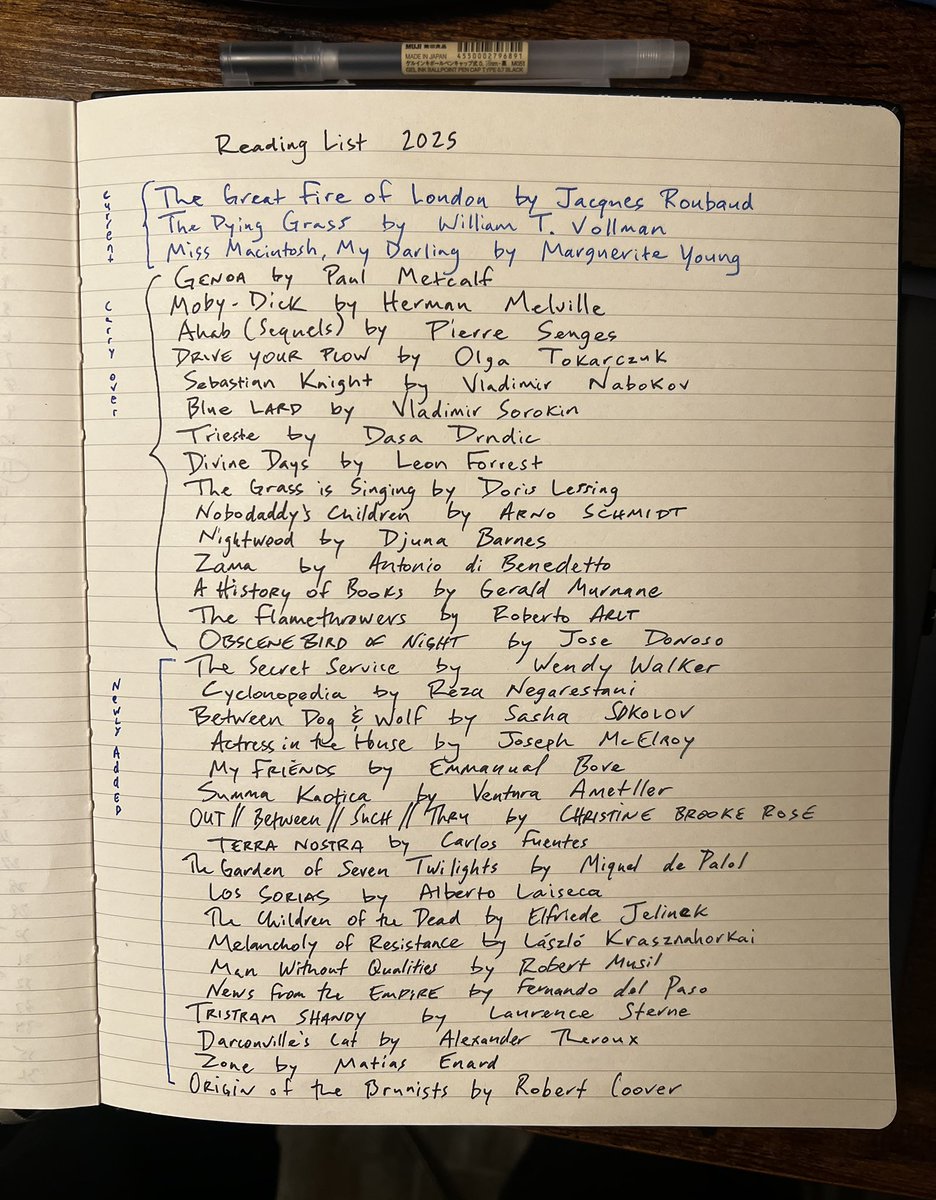 MUJI 無印良品
4550002796891
MADE IN JAPAN
GEL INK BALLPOINT PEN CAP TYPE 0.7 BLACK
Reading List 2025
current
The Great Fire of London by Jacques Roubaud
The Dying Grass by William T. Vollman
Miss Macintosh, My Darling by Marguerite Young
Carry over
GENOA by Paul Metcalf
Moby-Dick by Herman Melville
Ahab (Sequels) by Pierre Senges
DRIVE YOUR PLOW by Olga Tokarczuk
Sebastian Knight by Vladimir Nabokov
Blue LARD by Vladimir Sorokin
Trieste by Dasa Drndic
Divine Days by Leon Forrest
The Grass is Singing by Doris Lessing
Nobodaddy's Children by ARNO SCHMIDT
Nightwood by Djuna Barnes
Zama by Antonio di Benedetto
A History of Books by Gerald Murnane
The Flamethrowers by Roberto ARLT
OBSCENE BIRD OF NIGHT by Jose Donoso
Newly Added
The Secret Service by Wendy Walker
Cyclonopedia by Reza Negarestani
Between Dog & Wolf by Sasha SOKOLOV
Actress in the House by Joseph McElroy
My FRIENDS by Emmanual Bove
Summa Kaotica by Ventura Ametller
OUT // Between // Such // Thru by CHRISTINE BROOKE ROSE
TERRA NOSTRA by Carlos Fuentes
The Garden of Seven Twilights by Miquel de Palol
LOS SORIAS by Alberto Laiseca
The Children of the Dead by Elfriede Jelinek
Melancholy of Resistance by László Krasznahorkai
Man Without Qualities by Robert Musil
News from the EMPIRE by Fernando del Paso
TRISTRAM SHANDY by Laurence Sterne
Darconville's Cat by Alexander Theroux
Zone by Matias Enard
ORIGIN of the Brunists by Robert Coover